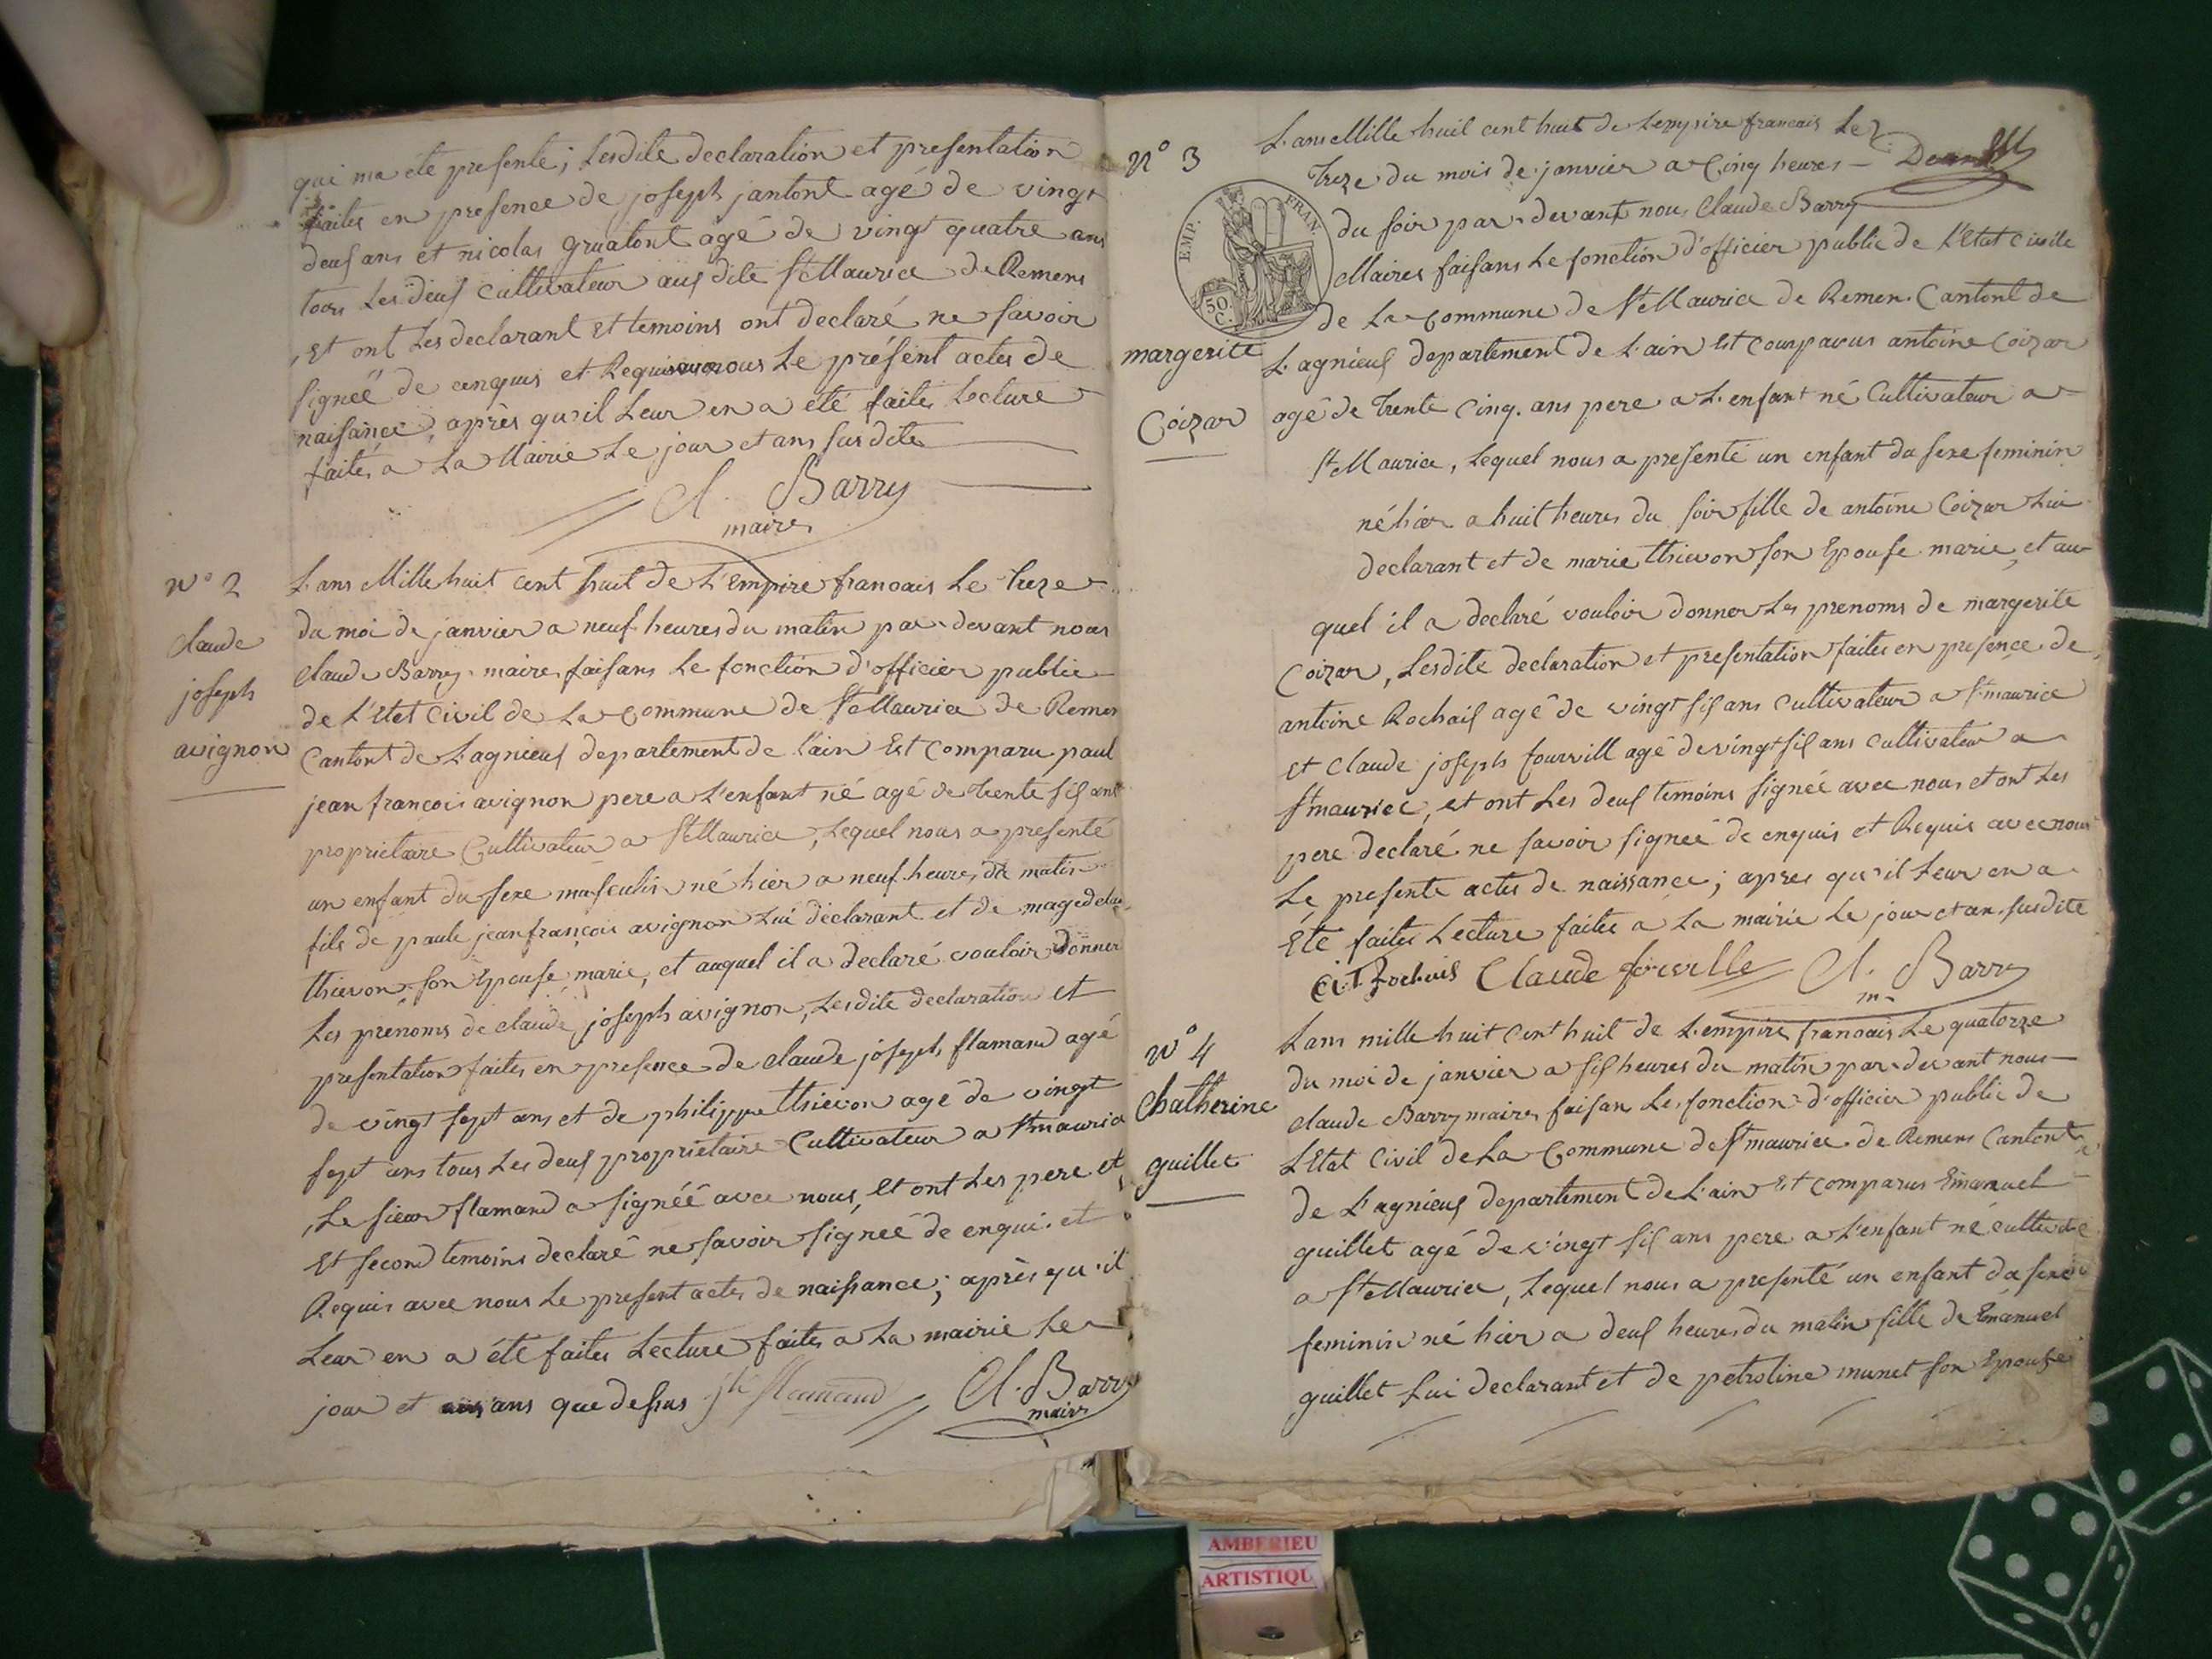 qui ma été presenté; Lesdite declaration et presentation
faites en presence de joseph jantont agé de vingt
deux ans et nicolas gruatont agé de vingt quatre ans
tous Les deux Cultivateur aux dite St Maurice de Remens
, Et ont Les declarant Et temoins ont declaré ne savoir
signeé de enquis et Requis nous Le présent actes de
naisance, après qu'il Leur en a été faites Lecture
faites a La Mairie Le jour et ans susdites
Cl. Barry
maire
N° 2
claude
joseph
avignon
L'ans Mille huit cent huit de L'Empire francais Le treze
du moi de janvier a neuf heures du matin par-devant nous
Claude Barry maire faisans Le fonction d'officier public
de L'Etet Civil de La Commune de St Maurice de Remen
Cantont de Lagnieux departement de L'ain Est Comparu paul
jean francois avignon pere a L'enfant né agé de trente six ans
proprietaire Cultivateur a St Maurice, Lequel nous a presenté
un enfant du sexe masculin né hier a neuf heures du matin
fils de paule jean françois avignon Lui declarant et de magedelai
thievon, son Epouse marie, et auquel il a declaré vouloir donner
Les prenoms de claude joseph avignon, Lesdite declaration et
presentation faites en presence de claude joseph flamand agé
de vingt sept ans et de philippe thievon agé de vingt
sept ans tous Les deux proprietaire Cultivateur a St maurice
, Le sieur flamand a signéé avec nous, Et ont Les pere et
Et second temoins declaré ne savoir signeé de enqui et
Requis avec nous Le present actes de naissance; après qu'il
Leur en a été faites Lecture faites a La mairie Le
jour et ans que dessus jh flamand Cl. Barry
maire
N° 3
EMP. FRAN.
50 C.
margerite
Coizar
L'ans Mille huit cent huit de Lempire francais Le
treze du mois de janvier a Cinq heures
du soir par-devant nous Claude Barry
Maires faisans Le fonction d'officier public de L'Etat Civile
de La Commune de St Maurice de Remen Cantont de
Lagnieux departement de L'ain Est Comparus antoine Coizar
agé de trente Cinq ans pere a L'enfant né Cultivateur a
St Maurice, Lequel nous a presenté un enfant du sexe feminin
né hier a huit heures du soir fille de antoine Coizar Lui
declarant et de marie thievon son Epouse marie, et au
quel il a declaré vouloir donner Les prenoms de margerite
Coizar, Lesdite declaration et presentation faites en presence de
antoine Rochaix agé de vingt six ans Cultivateur a St maurice
Et Claude joseph fourvill agé de vingt six ans Cultivateur a
St maurice, et ont Les deux temoins signée avec nous et ont Les
pere declaré ne savoir signeé de enquis et Requis avec nous
Le presente actes de naissance; apres qu'il Leur en a
Eté faites Lecture faites a La mairie Le jour et an susdite
Claude Cl. Barry
m
N° 4
Chatherine
guillet
Lans mille huit Cent huit de L'empire francais Le quatorze
du moi de janvier a six heures du matin par-devant nous
Claude Barry maires faisans Les fonction d'officier public de
LEtat Civil de La Commune de St maurice de Remens Cantont
de Lagnieux departement de L'ain Est comparus Emanuel
guillet agé de vingt six ans pere a L'enfant né cultivate
a St Maurice, Lequel nous a presenté un enfant du sexe
feminin né hier a deux heures du matin fille de Emanuel
guillet Lui declarant et de petroline munet son Epouse
AMBERIEU
ARTISTIQU